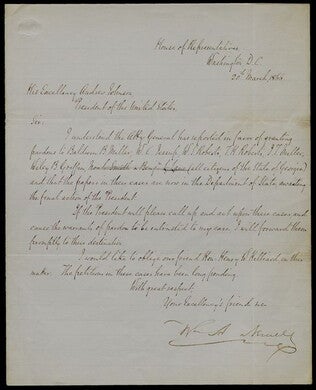 House of Representatives
Washington D.C.
20th March, 1866
His Excellency Andrew Johnson,
President of the United States.
Sir:
I understand the Atty General has reported in favor of granting
pardons to Baldwin B Miller, W. C. W. E. Roberts, T. H. Roberts, J. J. Miller,
Wiley B Griffin, Noah Smith & (all citizens of the State of Georgia)
and that the papers in these cases are now in the Department of State awaiting
the final action of the President.
If the President will please call up and act upon these cases and
cause the warrants of pardon to be entrusted to my care I will forward them
promptly to their destination.
I would like to oblige our friend Hon. Henry in this
matter. The petitions in these cases have been long pending.
With great respect,
Your Excellency's friend
Wm A.